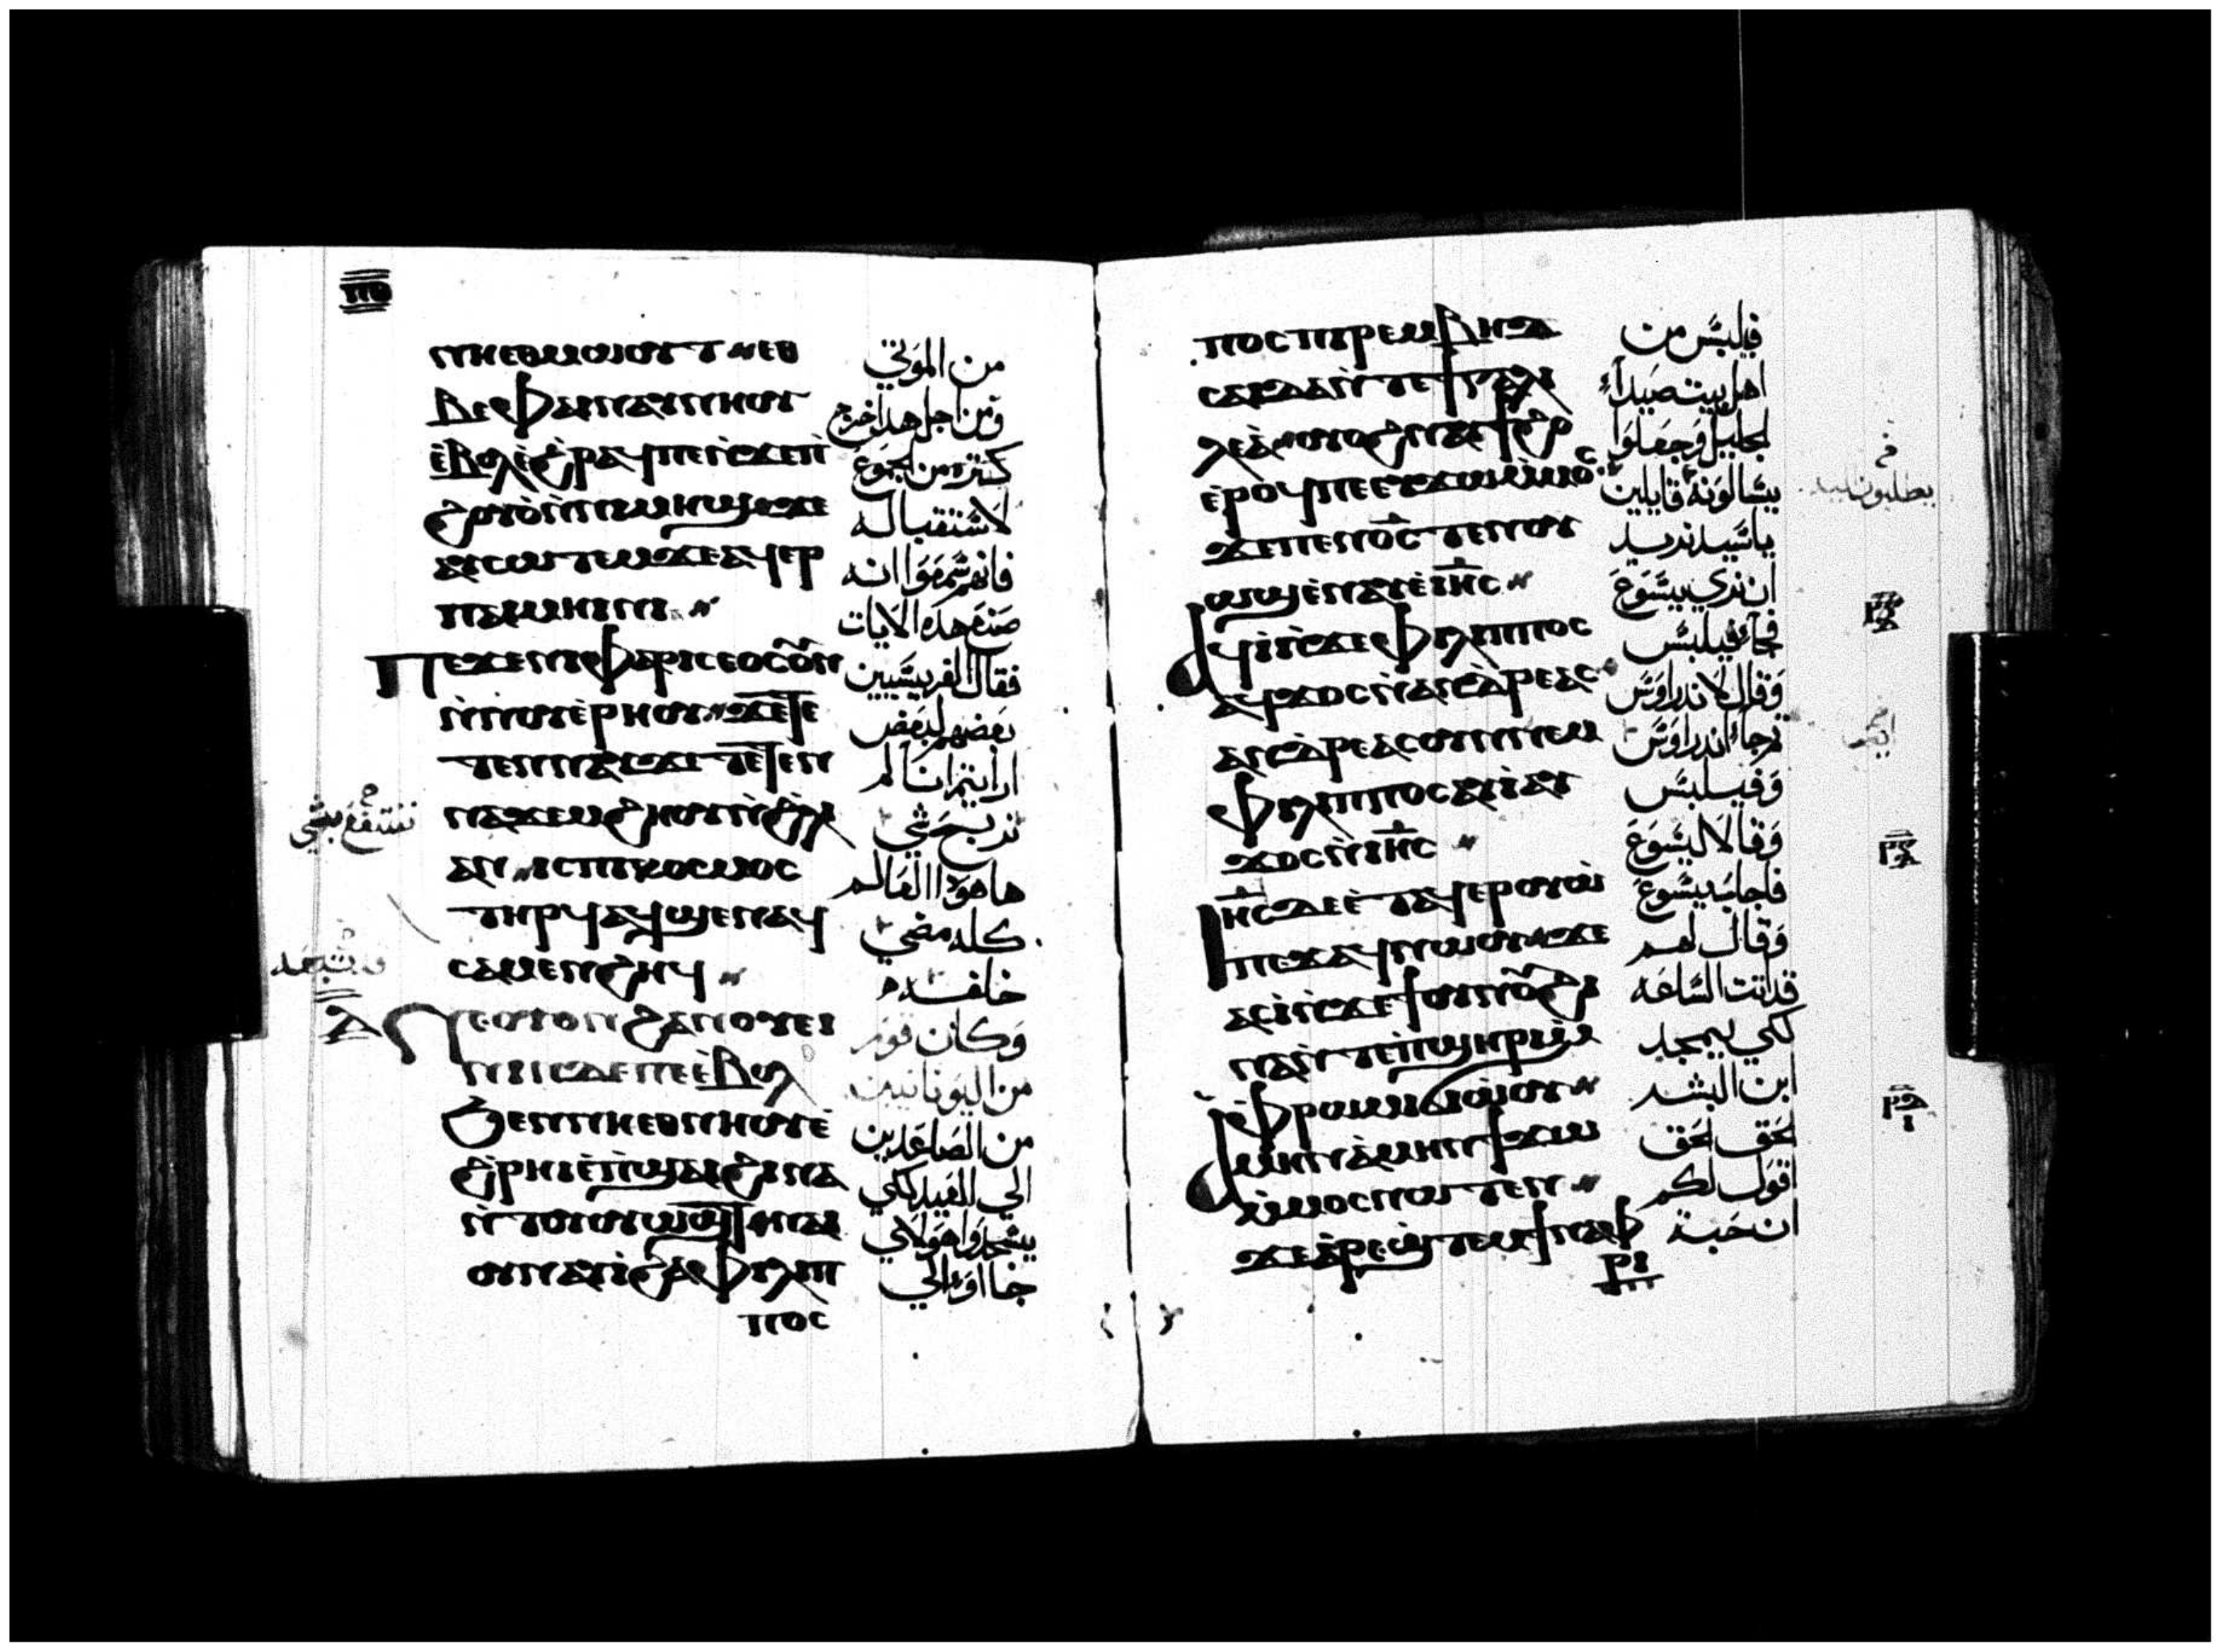 ⲡⲑ
ⲛⲏⲉⲑⲙⲱⲟⲩⲧ ⲉⲑ
ⲃⲉⲫⲁⲓⲛⲁⲩⲛⲏⲟⲩ
ⲉ̀ⲃⲟⲗⲉ̀ϩⲣⲁϥⲡⲉⲛ̀ϫⲉⲡⲓ
ϩⲟⲩⲟ̀ⲙ̀ⲡⲓⲙⲏϣϫⲉ
ⲁⲩⲥⲱⲧⲉⲙϫⲉⲁϥⲉⲣ
ⲡⲁⲓⲙⲏⲓⲛⲓ
ⲡⲉϫⲉⲛⲓⲫⲁⲣⲓⲥⲉⲟⲥⲟⲩⲛ
ⲛ̀ⲛⲟⲩⲉ̀ⲣⲏⲟⲩ ϫⲉⲧⲉ
ⲧⲉⲛⲛⲁⲩϫⲉⲧⲉⲧⲉⲛ
ⲛⲁϫⲉⲙϩⲏⲟⲩⲛ̀ϩ̀ⲗⲓ
ⲁⲛ ⲓⲥⲡⲓⲕⲟⲥⲙⲟⲥ
ⲧⲏⲣϥⲁϥϣⲉⲛⲁϥ
ⲥⲁⲙⲉⲛϩⲏϥ
ⲛⲉⲟⲩⲟⲛϩⲁⲛⲟⲩⲉⲓ
ⲛⲓⲛⲇⲉⲡⲉⲉ̀ⲃⲟⲗ
ϧⲉⲛⲛⲏⲉⲑⲛⲏⲟⲩⲉ̀
ϩ̀ⲣⲏⲓⲉ̀ⲡ̀ϣⲁⲓϩⲓⲛⲁ
ⲛ̀ⲧⲟⲩⲟⲩⲱϣⲧ ⲛⲁⲓ
ⲟⲩⲛⲁⲩⲓ̀ϩⲁⲫⲓⲗⲓⲡ
ⲡⲟⲥ
من الموتي
ومن اجل هدا خرج
كثره من الجموع
لاستقباله
فانهم سمعوا انه
صنع هده الايات
فقال الفريسيين
بعضهم لبعض
ارايتم اننا لم
نربح شي
ها هودا العالم
كله مضي
خلفه
وكان قوم
من اليونانيين
من الصاعدين
الي العيد لكي
يسجدوا هولاي
جااو الي
ننتفع بشي
ⲡⲟⲥⲡⲓⲣⲉⲙⲃⲏⲇ
ⲥⲁⲓⲇⲁⲛ̀ⲧⲉϯⲅⲁⲗⲓ
ⲗⲉⲁ̀ ⲟⲩⲟϩⲛⲁⲩϯϩⲟ
ⲉ̀ⲣⲟϥⲡⲉⲉⲩϫⲱⲙ̀ⲙⲟⲥ
ϫⲉⲡⲉⲛⲟ̅ⲥ̅ ⲧⲉⲛⲟⲩ
ⲱϣⲉ̀ⲛⲁⲩⲉ̀ⲓⲏ̅ⲥ̅
ⲁϥⲓ̀ⲛ̀ϫⲉⲫⲓⲗⲓⲡⲡⲟⲥ
ⲁϥϫⲟⲥⲛ̀ⲁⲛⲇⲣⲉⲁⲥ
ⲁⲛⲇⲣⲉⲁⲥⲟⲩⲛⲛⲉⲙ
ⲫⲓⲗⲓⲡⲡⲟⲥⲁⲩⲓ̀ⲁⲩ
ϫⲟⲥⲛ̀ⲓⲏ̅ⲥ̅
ⲓⲏ̅ⲥ̅ⲇⲉⲉ̀ⲧⲁϥⲉⲣⲟⲩⲱ̀
ⲡⲉϫⲁϥⲛⲱⲟⲩ ϫⲉ
ⲁⲥⲓ̀ⲛ̀ϫⲉϯⲟⲩⲛⲟⲩϩⲓ
ⲛⲁⲛ̀ⲧⲉⲡ̀ϣⲏⲣⲓⲙ̀
ⲫ̀ⲣⲱⲙⲓϭⲓⲱ̀ⲟⲩ
ⲁ̀ⲙⲏⲛⲁ̀ⲙⲏⲛϯϫⲱ
ⲙ̀ⲙⲟⲥⲛⲱⲧⲉⲛ
ϫⲉⲁ̀ⲣⲉϣⲧⲉⲙϯⲛⲁⲫ
ⲣⲓ
فيلبس من
اهل بيت صيدا
الجليل وجعلوا
يسالونه قايلين
ياسيد نريد
ان نري يسوع
فجاء فيلبس
وقال لاندراوس
ثم جاء اندراوس
وفيلبس
وقالا ليسوع
فاجابه يسوع
وقال لهم
قد اتت الساعه
لكي يمجد
ابن البشر
الحق الحق
اقول لكم
ان حبة